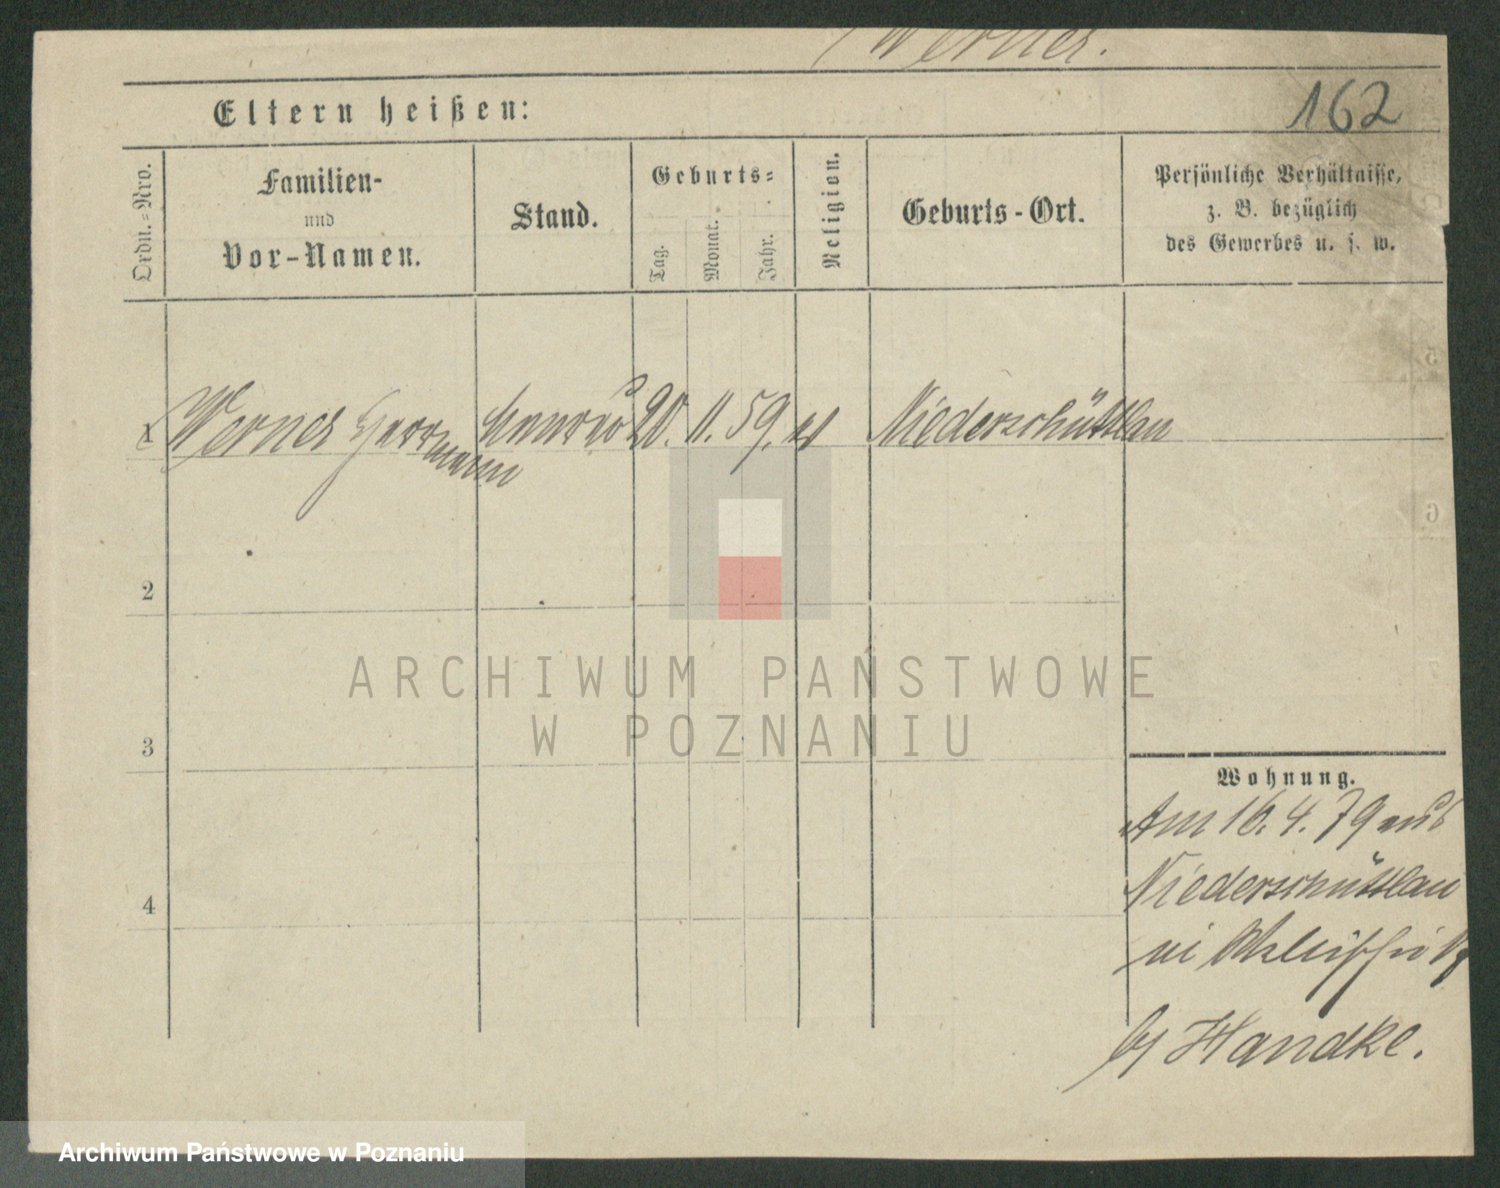 Werner.
162
Eltern heißen:
Ordn.=Nro.
Familien-
und
Vor-Namen.
Stand.
Geburts=
Tag.
Monat.
Jahr.
Religion.
Geburts-Ort.
Persönliche Verhältnisse,
z. B. bezüglich
des Gewerbes u. s. w.
1 Werner Herrmann 20. 11. 59. Niederschüttlau
2
3
4
Wohnung.
Am 16. 4. 79 aus
Niederschüttlau
in
by Handke.
ARCHIWUM PAŃSTWOWE
W POZNANIU
Archiwum Państwowe w Poznaniu